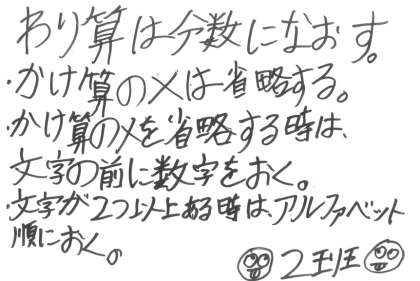 わり算は分数になおす。
・かけ算の×は省略する。
・かけ算の×を省略する時は、
文字の前に数字をおく。
・文字が2つ以上ある時は、アルファベット
順におく。
2班